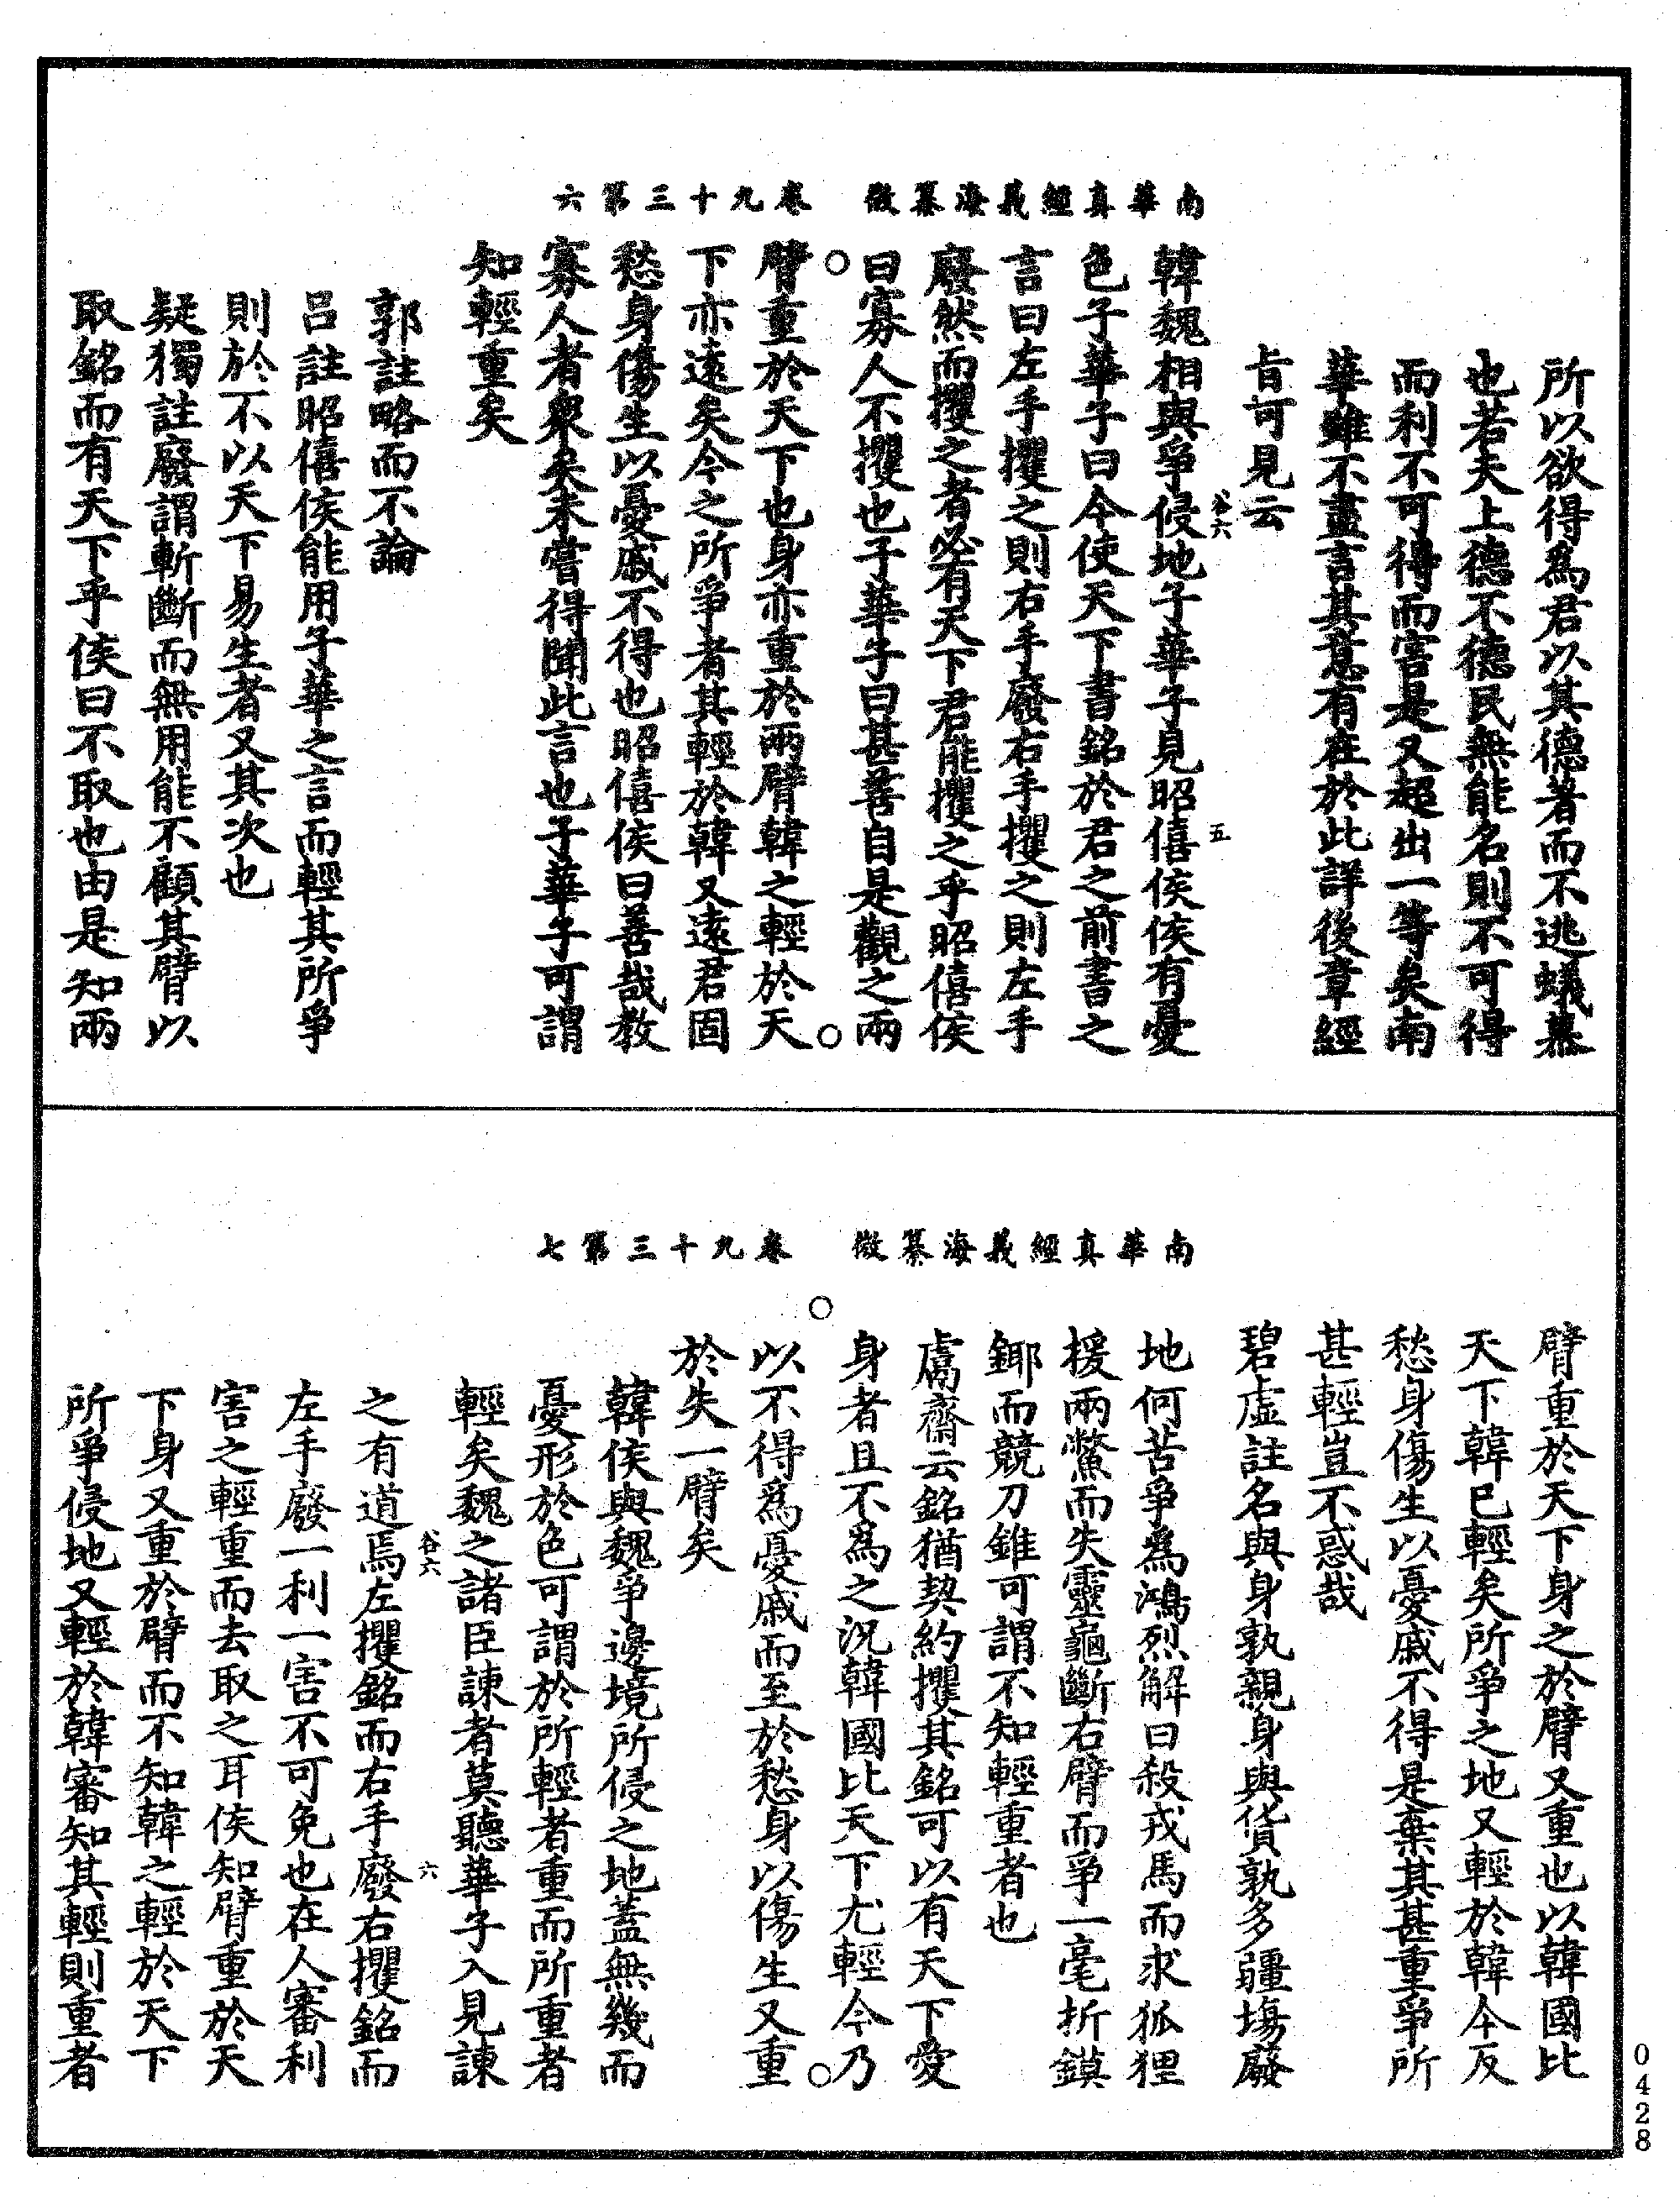 南華真經義海纂微　卷九十三第六
所以欲得為君以其德著而不逃蟻慕
也若夫上德不德民無能名則不可得
而利不可得而害是又超出一等矣南
華雖不盡言其意有在於此詳後章經
旨可見云
谷六　五
韓魏相與爭侵地子華子見昭僖侯侯有憂
色子華子曰今使天下書銘於君之前書之
言曰左手攫之則右手廢右手攫之則左手
廢然而攫之者必有天下君能攫之乎昭僖侯
曰寡人不攫也子華子曰甚善自是觀之兩
臂重於天下也身亦重於兩臂韓之輕於天
下亦遠矣今之所爭者其輕於韓又遠君固
愁身傷生以憂戚不得也昭僖侯曰善哉教
寡人者衆矣未嘗得聞此言也子華子可謂
知輕重矣
郭註略而不論
呂註昭僖侯能用子華之言而輕其所爭
則於不以天下易生者又其次也
疑獨註廢謂斬斷而無用能不顧其臂以
取銘而有天下乎侯曰不取也由是知兩
南華真經義海纂微　卷九十三第七
臂重於天下身之於臂又重也以韓國比
天下韓已輕矣所爭之地又輕於韓今反
愁身傷生以憂戚不得是棄其甚重爭所
甚輕豈不惑哉
碧虛註名與身孰親身與貨孰多疆場廢
地何苦爭為鴻烈解曰殺戎馬而求狐狸
援兩鱉而失靈龜斷右臂而爭一毫折鏌
鎁而競刀錐可謂不知輕重者也
鬳齋云銘猶契約攫其銘可以有天下愛
身者且不為之況韓國比天下尤輕今乃
以不得為憂戚而至於愁身以傷生又重
於失一臂矣
韓侯與魏爭邊境所侵之地蓋無幾而
憂形於色可謂於所輕者重而所重者
輕矣魏之諸臣諫者莫聽華子入見諫
谷六　六
之有道焉左攫銘而右手廢右攫銘而
左手廢一利一害不可免也在人審利
害之輕重而去取之耳侯知臂重於天
下身又重於臂而不知韓之輕於天下
所爭侵地又輕於韓審知其輕則重者
0428